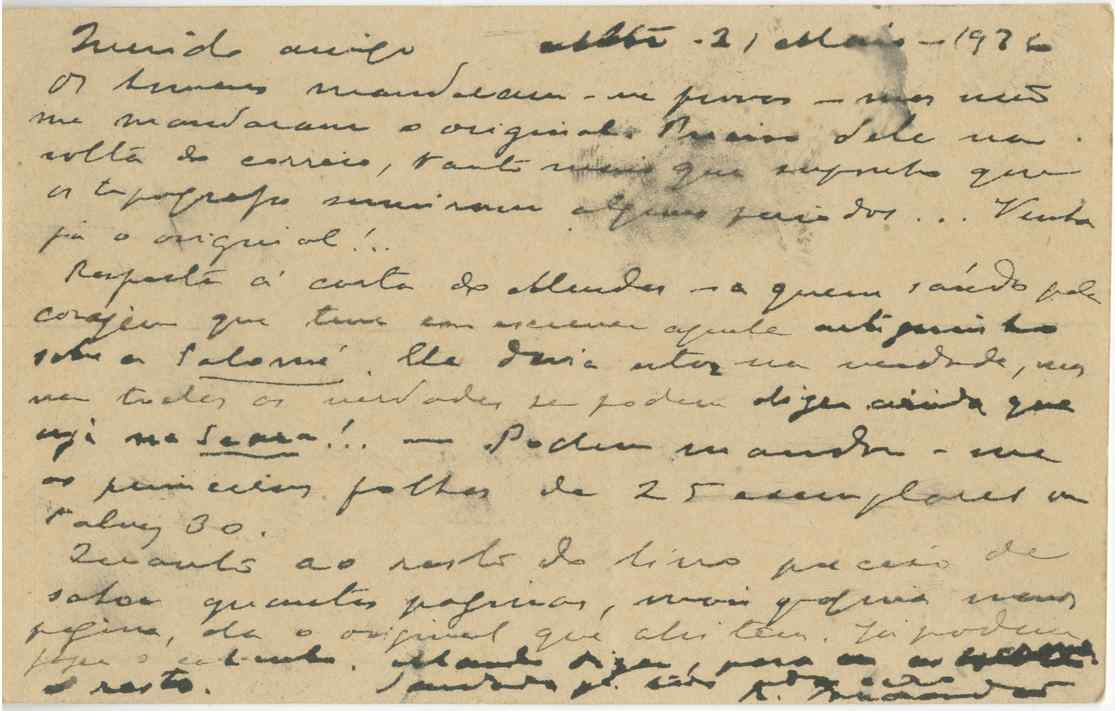 Querido amigo - 21 Maio - 192
Os homens mandaram-me provas - mas não
me mandaram o original. Preciso dele na
volta do correio, tanto mais que suponho que
os typografos sumiram alguns periodos... Venha
pois o original!..
Resposta á carta do Mendes - a quem saúdo pela
coragem que teve em escrever aquele artiguinho
sobre a Salomé. Ele devia estar na verdade, mas
nem todas as verdades se podem dizer ainda que
seja na Seara!.. — Podem mandar-me
as primeiras folhas de 25 exemplares ou
talvez 30.
Quanto ao resto do livro preciso de
saber quantas paginas, mais pagina menos
pagina, dá o original que ahi tem. Já podem
fazer o calculo. Mande dizer, para eu
o resto. Saudades
R. Brandão